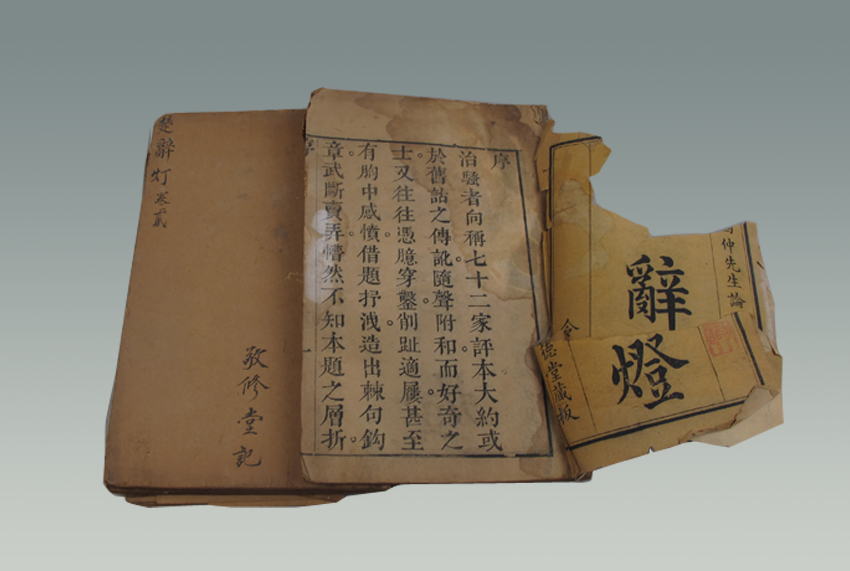 楚辭灯 卷貳
敬修堂記
序
治騷者向稱七十二家評本大約或
於舊詁之傳訛。隨聲附和。而好奇之
士又往往憑臆穿鑿。削趾適屨。甚至
有胸中感憤借題抒洩。造出棘句鈎
章。武斷賣弄。懵然不知本題之層折。
仲先生論
辭燈
德堂藏板